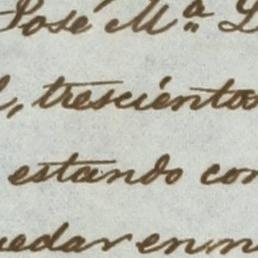 José Mª
trescientos
estando con
quedar en